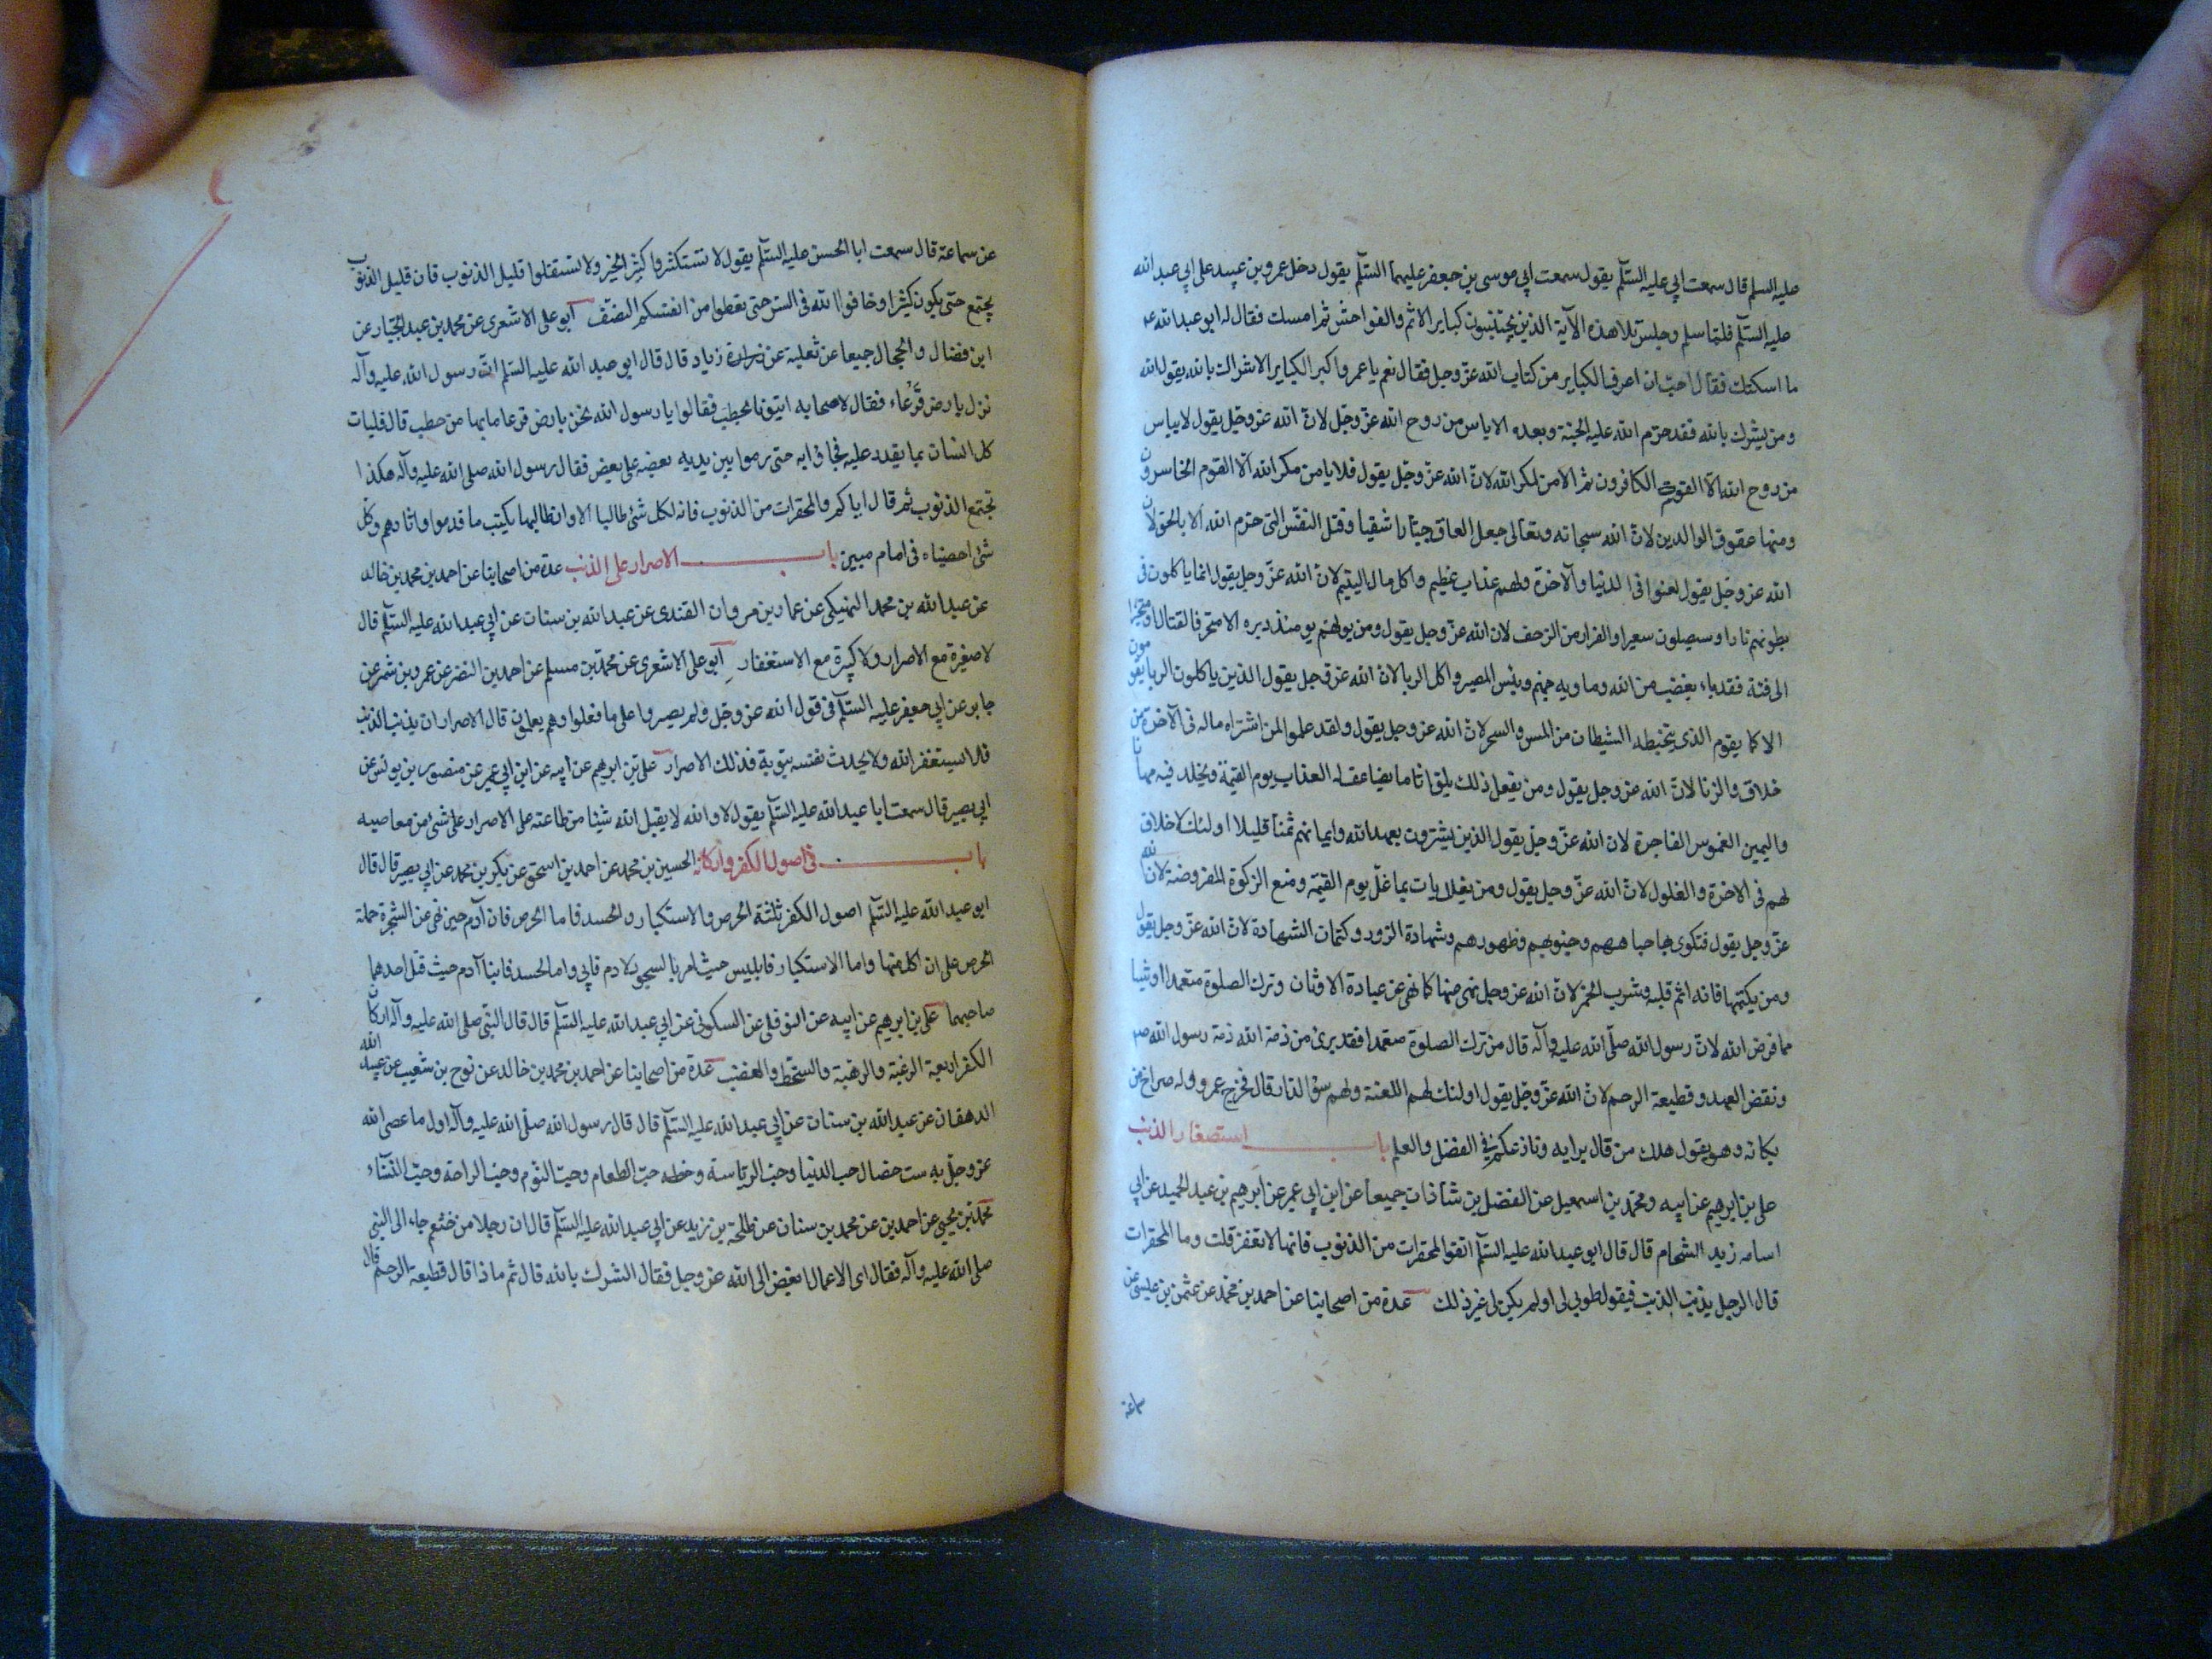 عليه السلم قال سمعت ابي عليه السلم يقول سمعت ابي موسى بن جعفر عليهما السلم يقول دخل عمرو بن عبيد على ابي عبد الله
عليه السلم فلما سلم وجلس تلا هذه الآية الذين يجتنبون كباير الاثم والفواحش ثم امسك فقال له ابو عبد الله عم
ما اسكتك فقال احب ان اعرف الكباير من كتاب الله عز وجل فقال نعم يا عمرو اكبر الكباير الاشراك بالله يقول الله
ومن يشرك بالله فقد حرم الله عليه الجنة وبعده الاياس من روح الله عز وجل لان الله عز وجل يقول لا ييأس
من روح الله الا القوم الكافرون ثم الامن لمكر الله لان الله عز وجل يقول فلا يامن مكر الله الا القوم الخاسرون
ومنها عقوق الوالدين لان الله سبحانه وتعالى جعل العاق جبارا شقيا وقتل النفس التي حرم الله الا بالحق لان
الله عز وجل يقول لعنوا في الدنيا والآخرة ولهم عذاب عظيم واكل مال اليتيم لان الله عز وجل يقول انما ياكلون في
بطونهم نارا وسيصلون سعيرا والفرار من الزحف لان الله عز وجل يقول ومن يولهم يومئذ دبره الا متحرفا لقتال او متحيزا
الى فئة فقد باء بغضب من الله وماويه جهنم وبئس المصير واكل الربا لان الله عز وجل يقول الذين ياكلون الربا لا يقومون
الا كما يقوم الذي يتخبطه الشيطان من المس والسحر لان الله عز وجل يقول ولقد علموا لمن اشتراه ماله في الآخرة من
خلاق والزنا لان الله عز وجل يقول ومن يفعل ذلك يلق اثاما يضاعف له العذاب يوم القيمة ويخلد فيه مهانا
واليمين الغموس الفاجرة لان الله عز وجل يقول الذين يشترون بعهد الله وايمانهم ثمنا قليلا اولئك لا خلاق
لهم في الاخرة والغلول لان الله عز وجل يقول ومن يغلل يات بما غل يوم القيمة ومنع الزكوة المفروضة لان الله
عز وجل يقول فتكوى بها جباههم وجنوبهم وظهورهم وشهادة الزور وكتمان الشهادة لان الله عز وجل يقول
ومن يكتمها فانه اثم قلبه وشرب الخمر لان الله عز وجل نهى عنها كما نهى عن عبادة الاوثان وترك الصلوة متعمدا او شيئا
مما فرض الله لان رسول الله صلى الله عليه وآله قال من ترك الصلوة متعمدا فقد برئ من ذمة الله ذمة رسول الله صم
ونقض العهد وقطيعة الرحم لان الله عز وجل يقول اولئك لهم اللعنة ولهم سؤ الدار قال فخرج عمرو وله صراخ من
بكائه وهو يقول هلك من قال برايه ونازعكم في الفضل والعلم باب استصغار الذنب
على بن ابرهيم عن ابيه ومحمد بن اسمعيل عن الفضل بن شاذان جميعا عن ابن ابي عمير عن ابرهيم بن عبد الحميد عن ابي
اسامه زيد الشحام قال قال ابو عبد الله عليه السلم اتقوا المحقرات من الذنوب فانها لا تغفر قلت وما المحقرات
قال الرجل يذنب الذنب فيقول طوبى لى لو لم يكن لى غير ذلك عدة من اصحابنا عن احمد بن محمد عن عثمن بن عيسى عن
سماعة
عن سماعة قال سمعت ابا الحسن عليه السلم يقول لا تستكثروا كثير الخير ولا تستقلوا قليل الذنوب فان قليل الذنوب
يجتمع حتى يكون كثيرا وخافوا الله في السر حتى تعطوا من انفسكم النصف ابو على الاشعرى عن محمد بن عبد الجبار عن
ابن فضال والحجال جميعا عن ثعلبة عن زياد قال قال ابو عبد الله عليه السلم ان رسول الله عليه وآله
نزل بارض قرعاء فقال لاصحابه ايتونا بحطب فقالوا يا رسول الله نحن بارض قرعا ما بها من حطب قال فليات
كل انسان بما يقدر عليه فجاؤا به حتى رموا بين يديه بعضه على بعض فقال رسول الله صلى الله عليه وآله هكذا
تجتمع الذنوب ثم قال اياكم والمحقرات من الذنوب فانه لكل شئ طالبا الا وان طالبها يكتب ما قدموا واثارهم وكل
شئ احصيناه في امام مبين باب الاصرار على الذنب عدة من اصحابنا عن احمد بن محمد بن خالد
عن عبد الله بن محمد النهيكى عن عمار بن مروان القندى عن عبد الله بن سنان عن ابي عبد الله عليه السلم قال
لا صغيرة مع الاصرار ولا كبيرة مع الاستغفار ابو على الاشعرى عن محمد بن مسلم عن احمد بن النضر عن عمرو بن شمر عن
جابر عن ابي جعفر عليه السلم في قول الله عز وجل ولم يصروا على ما فعلوا وهم يعلمون قال الاصرار ان يذنب الذنب
فلا يستغفر الله ولا يحدث نفسه بتوبة فذلك الاصرار على بن ابرهيم عن ابيه عن ابن ابي عمير عن منصور بن يونس عن
ابي بصير قال سمعت ابا عبد الله عليه السلم يقول لا والله لا يقبل الله شيئا من طاعته على الاصرار على شئ من معاصيه
باب في اصول الكفر واركانه الحسين بن محمد عن احمد بن اسحق عن بكر بن محمد عن ابي بصير قال قال
ابو عبد الله عليه السلم اصول الكفر ثلثة الحرص والاستكبار والحسد فاما الحرص فان آدم حين نهى عن الشجرة حمله
الحرص على ان اكل منها واما الاستكبار فابليس حيث امر بالسجود لادم فابى واما الحسد فابنا آدم حيث قتل احدهما
صاحبهما على بن ابرهيم عن ابيه عن النوفلي عن السكوني عن ابي عبد الله عليه السلم قال قال النبي صلى الله عليه وآله اركان
الكفر اربعة الرغبة والرهبة والسخط والغضب عدة من اصحابنا عن احمد بن محمد بن خالد عن نوح بن شعيب عن عبيد الله
الدهقان عن عبد الله بن سنان عن ابي عبد الله عليه السلم قال قال رسول الله صلى الله عليه وآله اول ما عصى الله
عز وجل به ست خصال حب الدنيا وحب الرياسة وحب الطعام وحب النوم وحب الراحة وحب النساء
محمد بن يحيى عن احمد بن عن محمد بن سنان عن طلحة بن زيد عن ابي عبد الله عليه السلم قال ان رجلا من خثعم جاء الى النبي
صلى الله عليه وآله فقال اى الاعمال ابغض الى الله عز وجل فقال الشرك بالله قال ثم ماذا قال قطيعة الرحم قال